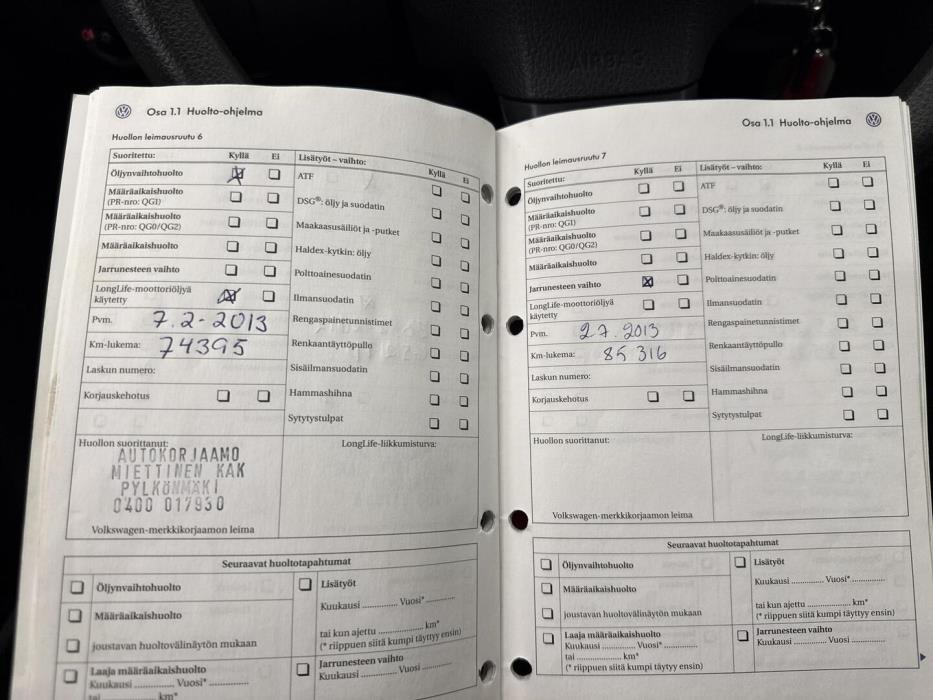 AIRBAG
Osa 1.1 Huolto-ohjelma
Huollon leimausruutu 6
Suoritettu: Kyllä Ei
Öljynvaihtohuolto
Määräaikaishuolto
(PR-nro: QG1)
Määräaikaishuolto
(PR-nro: QG0/QG2)
Määräaikaishuolto
Jarrunesteen vaihto
LongLife-moottoriöljyä
käytetty
Pvm. 7.2-2013
Km-lukema: 74395
Laskun numero:
Korjauskehotus
Lisätyöt – vaihto: Kyllä Ei
ATF
DSG®: öljy ja suodatin
Maakaasusäiliöt ja -putket
Haldex-kytkin: öljy
Polttoainesuodatin
Ilmansuodatin
Rengaspainetunnistimet
Renkaantäyttöpullo
Sisäilmansuodatin
Hammashihna
Sytytystulpat
Huollon suorittanut:
AUTOKORJAAMO
MIETTINEN KAK
PYLKÖNMÄKI
0400 017930
Volkswagen-merkkikorjaamon leima
LongLife-liikkumisturva:
Seuraavat huoltotapahtumat
Öljynvaihtohuolto
Määräaikaishuolto
joustavan huoltovälinäytön mukaan
Laaja määräaikaishuolto
Kuukausi .............. Vuosi* ..............
tai .............. km*
Lisätyöt
Kuukausi .............. Vuosi* ..............
tai kun ajettu .............. km*
(* riippuen siitä kumpi täyttyy ensin)
Jarrunesteen vaihto
Kuukausi .............. Vuosi ..............
Osa 1.1 Huolto-ohjelma
Huollon leimausruutu 7
Suoritettu: Kyllä Ei
Öljynvaihtohuolto
Määräaikaishuolto
(PR-nro: QG1)
Määräaikaishuolto
(PR-nro: QG0/QG2)
Määräaikaishuolto
Jarrunesteen vaihto
LongLife-moottoriöljyä
käytetty
Pvm. 27.2013
Km-lukema: 85 316
Laskun numero:
Korjauskehotus
Lisätyöt – vaihto: Kyllä Ei
ATF
DSG®: öljy ja suodatin
Maakaasusäiliöt ja -putket
Haldex-kytkin: öljy
Polttoainesuodatin
Ilmansuodatin
Rengaspainetunnistimet
Renkaantäyttöpullo
Sisäilmansuodatin
Hammashihna
Sytytystulpat
Huollon suorittanut:
Volkswagen-merkkikorjaamon leima
LongLife-liikkumisturva:
Seuraavat huoltotapahtumat
Öljynvaihtohuolto
Määräaikaishuolto
joustavan huoltovälinäytön mukaan
Laaja määräaikaishuolto
Kuukausi .............. Vuosi* ..............
tai .............. km*
(* riippuen siitä kumpi täyttyy ensin)
Lisätyöt
Kuukausi .............. Vuosi* ..............
tai kun ajettu .............. km*
(* riippuen siitä kumpi täyttyy ensin)
Jarrunesteen vaihto
Kuukausi .............. Vuosi ..............